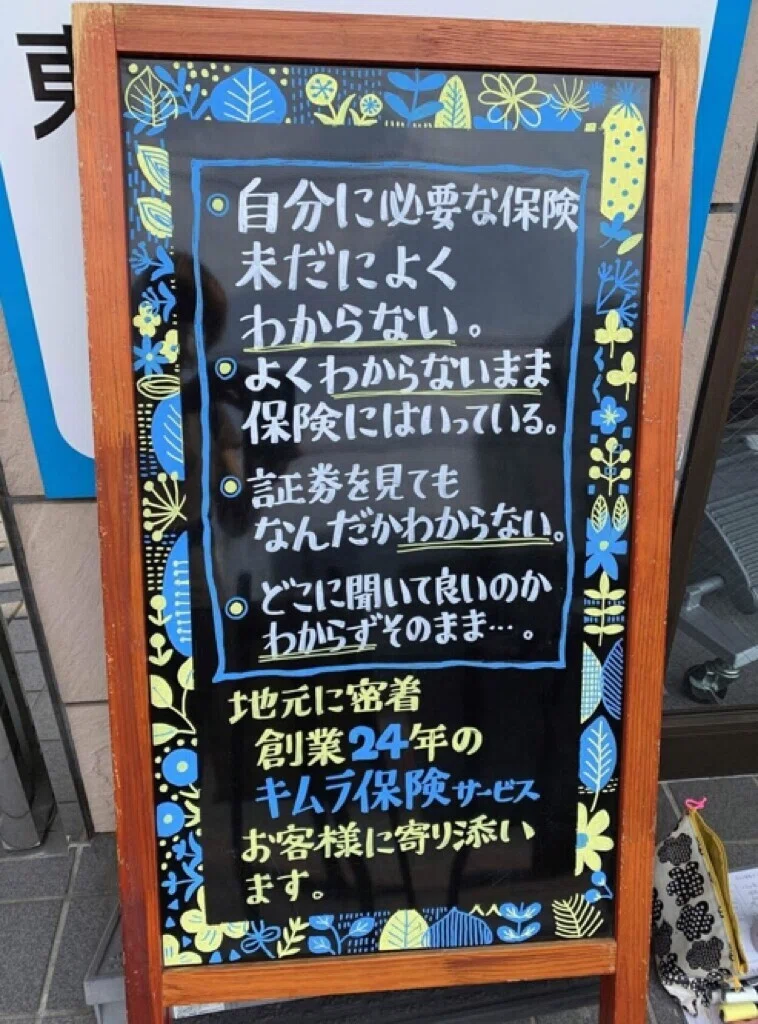 自分に必要な保険
未だによく
わからない。
よくわからないまま
保険にはいっている。
証券を見ても
なんだかわからない。
どこに聞いて良いのか
わからずそのまま…。
地元に密着
創業24年の
キムラ保険サービス
お客様に寄り添い
ます。